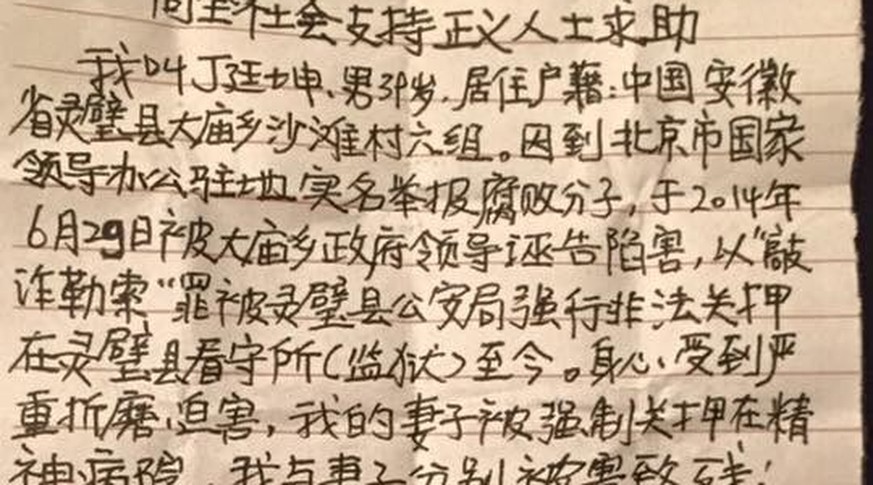 向全社会支持正义人士求助
我叫丁廷坤、男39岁.居住户藉:中国安徽
省灵璧县大庙乡沙滩村六组。因到北京市国家
领导办公驻地实名举报腐败分子,于2014年
6月29日被大庙乡政府领导诬告陷害,以"敲
诈勒索"罪被灵璧县公安局强行非法关押
在灵璧县看守所(监狱)至今。身心、受到严
重折磨、迫害,我的妻子被强制关押在精
神病院,我与妻子分别被害致残!